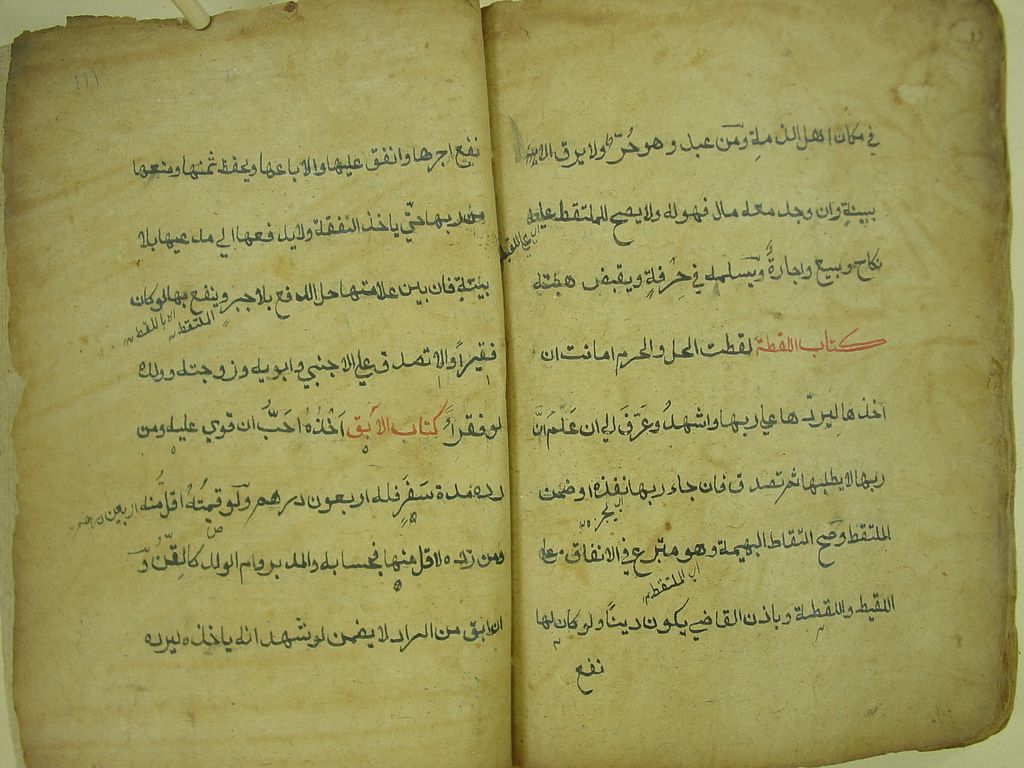 في مكان اهل الذمة ومن عبد وهو حُرّ ولا يرق الا
ببينةٍ وان وجد معه مال فهوله ولا يصح للملتقط عليه
اي على اللقيط
نكاح وبيع واجارةٌ ويسلمه في حِرْفةٍ ويقبض هبته
كتاب اللقطة لقطت الحل والحرم امانت ان
اخذها ليردّها علي ربها واشهدُ وعَرَّفَ الي ان عَلَمَ انَّ
ربها لا يطلبها ثم تصدق فان جاء ربها نفذه او ضمن
الملتقط وصح التقاط البهيمة وهو متبرع في الانفاق على
اي الملتقط
اللقيط واللقطة وباذن القاضي يكون ديناً ولو كان لها
نفع
١١١
نفع اجرها وانفق عليها والا باعها ويحفظ ثمنها ومنعها
من ربها حتّي ياخذ النفقة ولا يدفعها الي مدعيها بلا
بينةٍ فان بين علامتها حل الدفع بلا جبرٍ وينفع بها لو كان
الملتقط اي باللقطة
فقيراً والا تصدق علي الاجنبي وابويه وزوجته وولده
لو فقراً كتاب الآبق اَخْذُهُ احَبُّ ان قوي عليه ومن
رده مدة سَفَرٍ فله اربعون درهم ولو قيمتُهُ اقلُّ منه
اربعين درهم
ومن رده لاقل منها فبحسابه والمدبر وام الولد كالقِنّ و
ان ابق من الراد لا يضمن لو شهد انه ياخذه ليرده